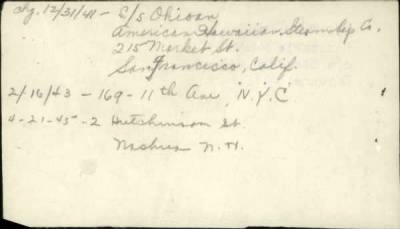 chg. 12/31/41 - S/S Ohioan
American Hawaiian Steamship Co.
215 Market St.
San Francisco, Calif.
2/16/43 - 169 - 11th Ave, N.Y.C
4-21-45 - 2 Hutchinson St.
Nashua N.H.